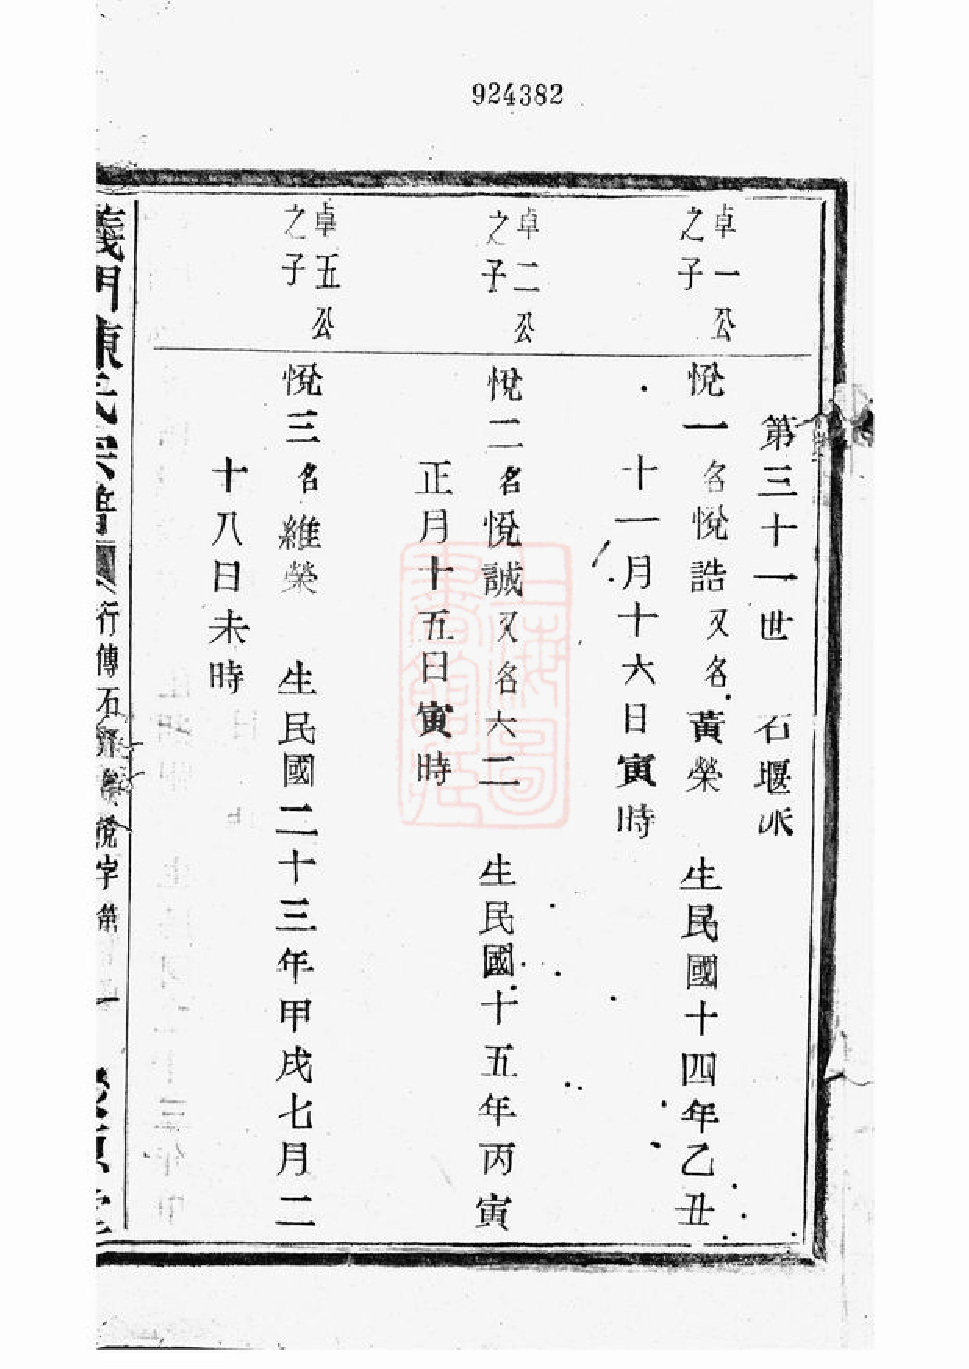 924382
第三十一世 石堰派
卓一公
之子
悅一名悅誥又名黃榮 生民國十四年乙丑
十一月十六日寅時
卓二公
之子
悅二名悅誠又名六二 生民國十五年丙寅
正月十五日寅時
卓五公
之子
悅三名維榮 生民國二十三年甲戌七月二
十八日未時
義門陳氏宗譜 行傳石 悅字第一